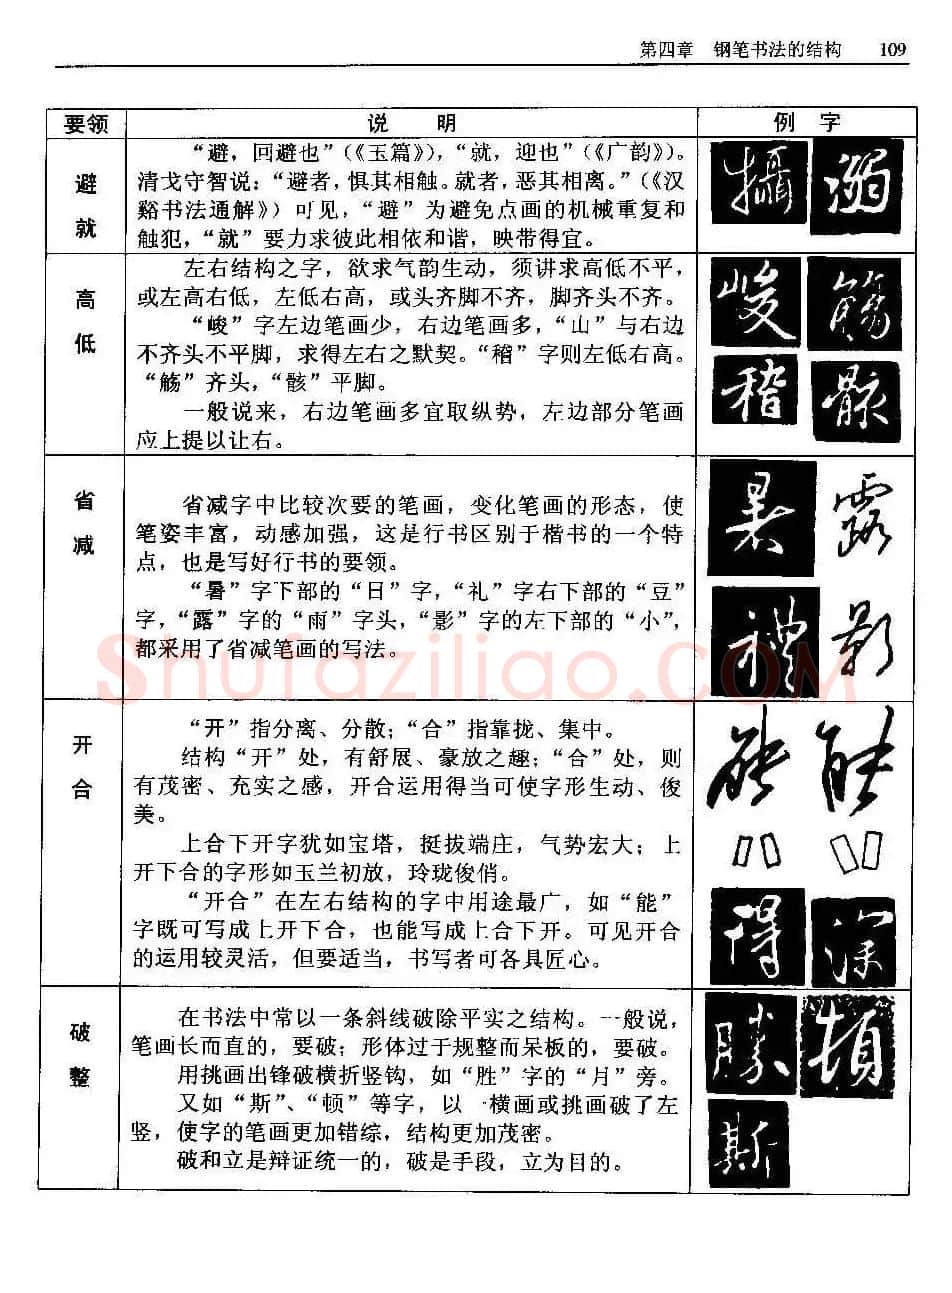 第四章 钢笔书法的结构 109
要领 说 明 例 字
避就
“避，回避也”（《玉篇》），“就，迎也”（《广韵》）。
清戈守智说：“避者，惧其相触。就者，恶其相离。”（《汉
谿书法通解》）可见，“避”为避免点画的机械重复和
触犯，“就”要力求彼此相依和谐，映带得宜。
攝 溺
高低
左右结构之字，欲求气韵生动，须讲求高低不平，
或左高右低，左低右高，或头齐脚不齐，脚齐头不齐。
“峻”字左边笔画少，右边笔画多，“山”与右边
不齐头不平脚，求得左右之默契。“稽”字则左低右高。
“觞”齐头，“骸”平脚。
一般说来，右边笔画多宜取纵势，左边部分笔画
应上提以让右。
峻 觴
稽 骸
省减
省减字中比较次要的笔画，变化笔画的形态，使
笔姿丰富，动感加强，这是行书区别于楷书的一个特
点，也是写好行书的要领。
“暑”字下部的“日”字，“礼”字右下部的“豆”
字，“露”字的“雨”字头，“影”字的左下部的“小”，
都采用了省减笔画的写法。
暑 露
禮 影
Shufaziliao.COM
开合
“开”指分离、分散；“合”指靠拢、集中。
结构“开”处，有舒展、豪放之趣；“合”处，则
有茂密、充实之感，开合运用得当可使字形生动、俊
美。
上合下开字犹如宝塔，挺拔端庄，气势宏大；上
开下合的字形如玉兰初放，玲珑俊俏。
“开合”在左右结构的字中用途最广，如“能”
字既可写成上开下合，也能写成上合下开。可见开合
的运用较灵活，但要适当，书写者可各具匠心。
能 能
得 深
破整
在书法中常以一条斜线破除平实之结构。一般说，
笔画长而直的，要破；形体过于规整而呆板的，要破。
用挑画出锋破横折竖钩，如“胜”字的“月”旁。
又如“斯”、“顿”等字，以一横画或挑画破了左
竖，使字的笔画更加错综，结构更加茂密。
破和立是辩证统一的，破是手段，立为目的。
勝 頓
斯